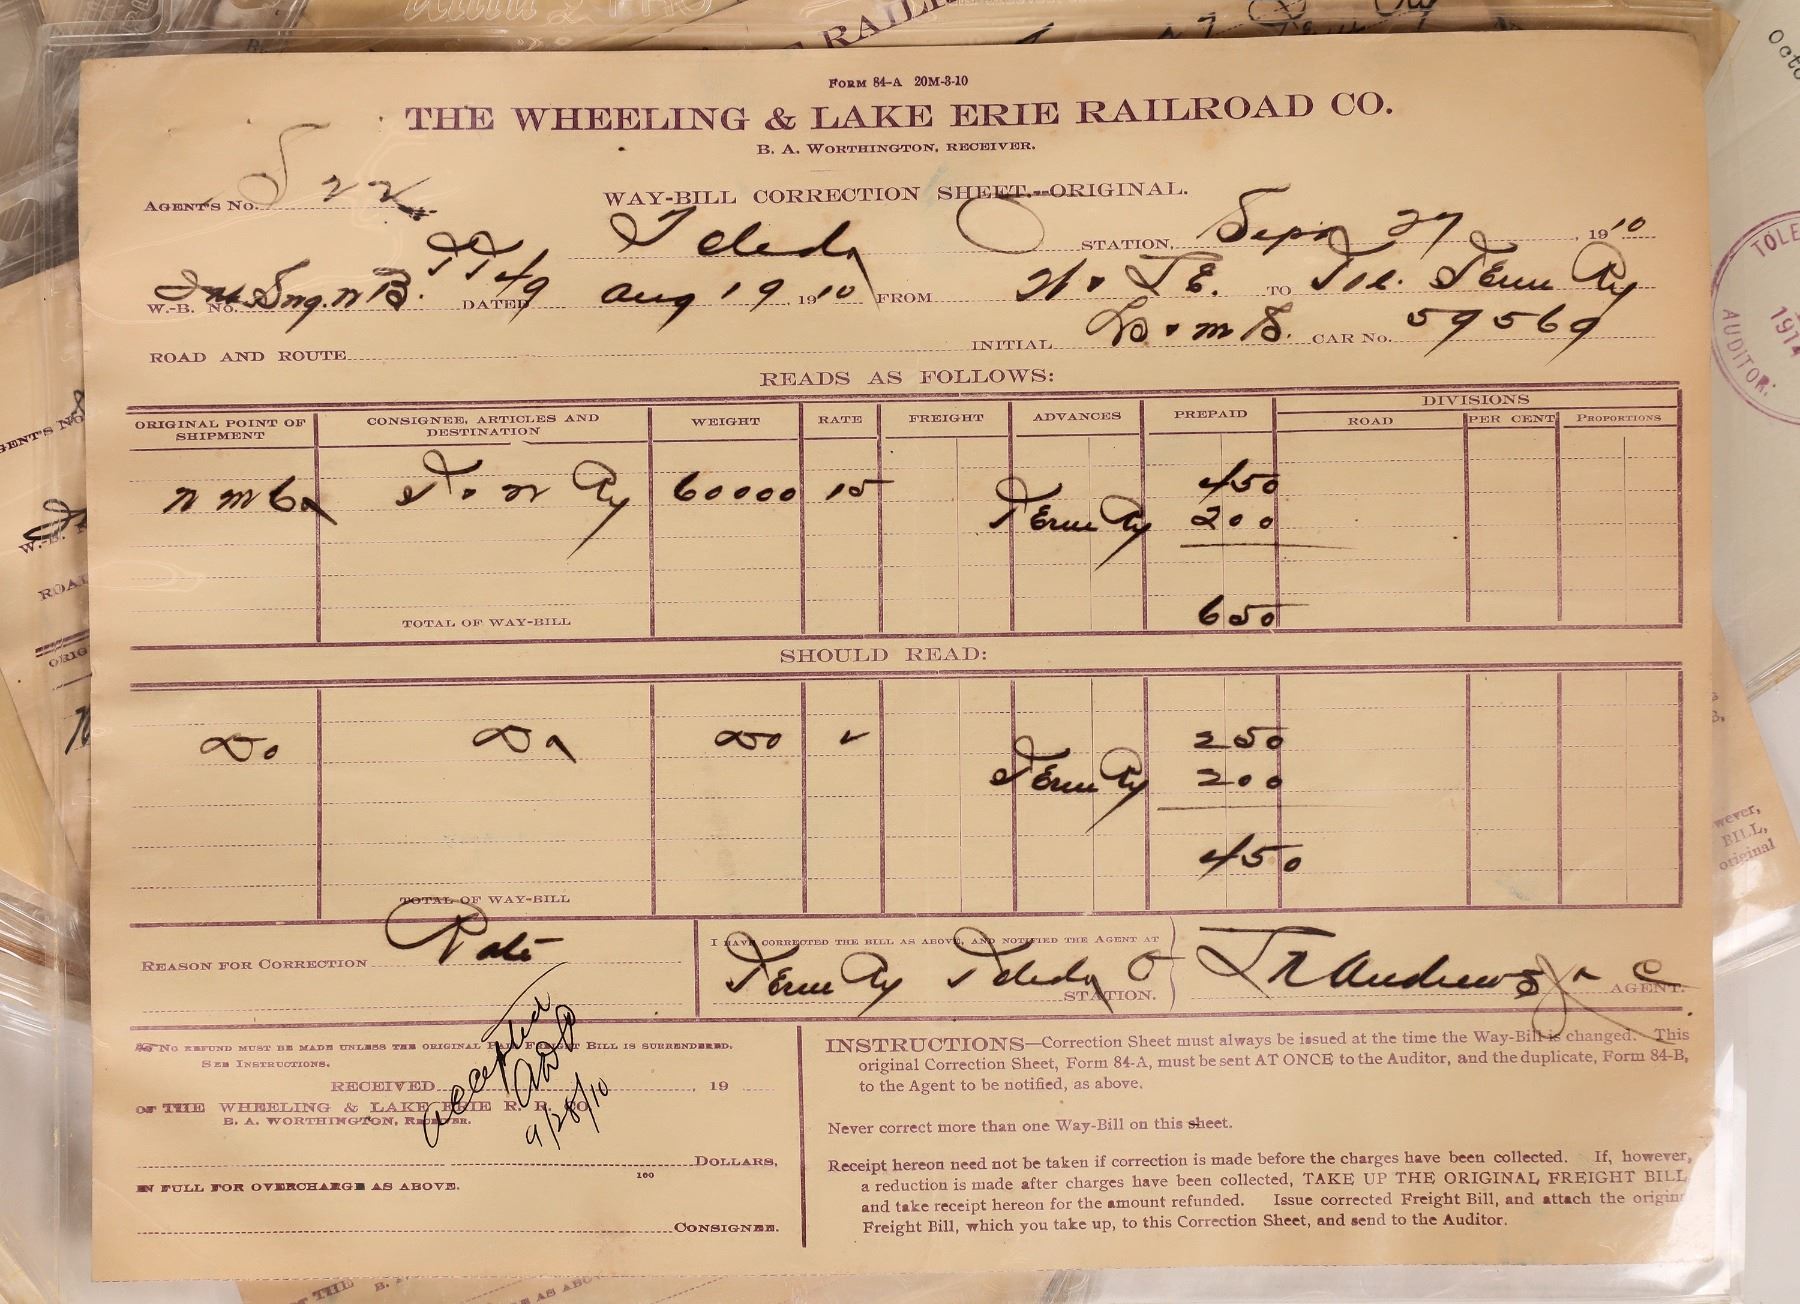 FORM 84-A 20M-3-10
THE WHEELING & LAKE ERIE RAILROAD CO.
B. A. WORTHINGTON, RECEIVER.
AGENT'S No. 522
WAY-BILL CORRECTION SHEET.--ORIGINAL.
Toledo O STATION, Sept 27, 1910
W.-B. No. DATED Aug 19, 1910 FROM W & L E. TO Tol. Term Ry
ROAD AND ROUTE INITIAL CAR No. 59569
READS AS FOLLOWS:
ORIGINAL POINT OF SHIPMENT CONSIGNEE, ARTICLES AND DESTINATION WEIGHT RATE FREIGHT ADVANCES PREPAID DIVISIONS
ROAD PER CENT PROPORTIONS
450
N M Co Ry 60000 15
Term Ry 200
TOTAL OF WAY-BILL 650
SHOULD READ:
Do Do Do 250
Term Ry 200
450
TOTAL OF WAY-BILL
REASON FOR CORRECTION Rate
I HAVE CORRECTED THE BILL AS ABOVE, AND NOTIFIED THE AGENT AT
Term Ry Toledo O STATION. Andrews Jr AGENT.
No REFUND MUST BE MADE UNLESS THE ORIGINAL PAID FREIGHT BILL IS SURRENDERED.
SEE INSTRUCTIONS.
RECEIVED , 19
OF THE WHEELING & LAKE ERIE R. R. CO.
B. A. WORTHINGTON, RECEIVER.
Accepted
9/28/10
DOLLARS,
100
IN FULL FOR OVERCHARGE AS ABOVE.
CONSIGNEE.
INSTRUCTIONS—Correction Sheet must always be issued at the time the Way-Bill is changed. This
original Correction Sheet, Form 84-A, must be sent AT ONCE to the Auditor, and the duplicate, Form 84-B,
to the Agent to be notified, as above.
Never correct more than one Way-Bill on this sheet.
Receipt hereon need not be taken if correction is made before the charges have been collected. If, however,
a reduction is made after charges have been collected, TAKE UP THE ORIGINAL FREIGHT BILL
and take receipt hereon for the amount refunded. Issue corrected Freight Bill, and attach the origin
Freight Bill, which you take up, to this Correction Sheet, and send to the Auditor.
TOLE
1914
AUDITOR.
wever,
BILL,
original